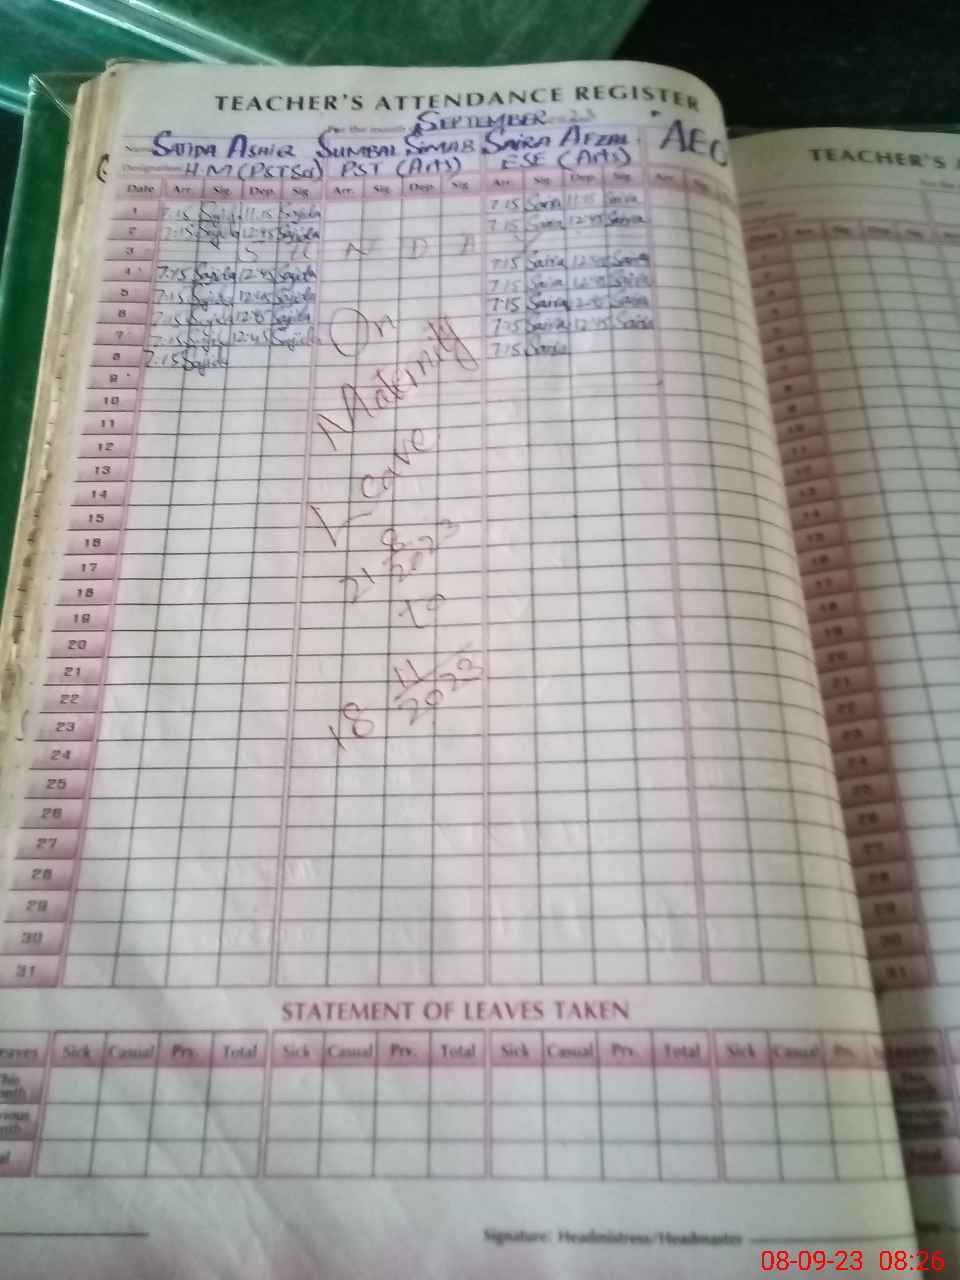 TEACHER'S ATTENDANCE REGISTER
For the month SEPTEMBER 23
Name SAJIDA ASHIQ SUMBAL SIMAB SAIRA AFZAL AEO
Designation H.M (PST Sci) PST (Arts) ESE (Arts)
Date Arr. Sig. Dep. Sig. Arr. Sig. Dep. Sig. Arr. Sig. Dep. Sig. Arr. Sig.
1 7:15 Sajida 11:15 Sajida 7:15 Saira 11:15 Saira
2 7:15 Sajida 12:45 Sajida 7:15 Saira 12:45 Saira
3 S U N D A Y
4 7:15 Sajida 12:45 Sajida 7:15 Saira 12:45 Saira
5 7:15 Sajida 12:45 Sajida 7:15 Saira 12:45 Saira
6 7:15 Sajida 12:45 Sajida 7:15 Saira 12:45 Saira
7 7:15 Sajida 12:45 Sajida 7:15 Saira 12:45 Saira
8 7:15 Sajida 7:15 Saira
9
10
11
12
13
14
15
16
17
18
19
20
21
22
23
24
25
26
27
28
29
30
31
On
Maternity
Leave
21 8 2023
To
18 11/2023
STATEMENT OF LEAVES TAKEN
Sick Casual Prv. Total Sick Casual Prv. Total Sick Casual Prv. Total Sick Casual Prv.
Signature: Headmistress/Headmaster
TEACHER'S
08-09-23 08:26